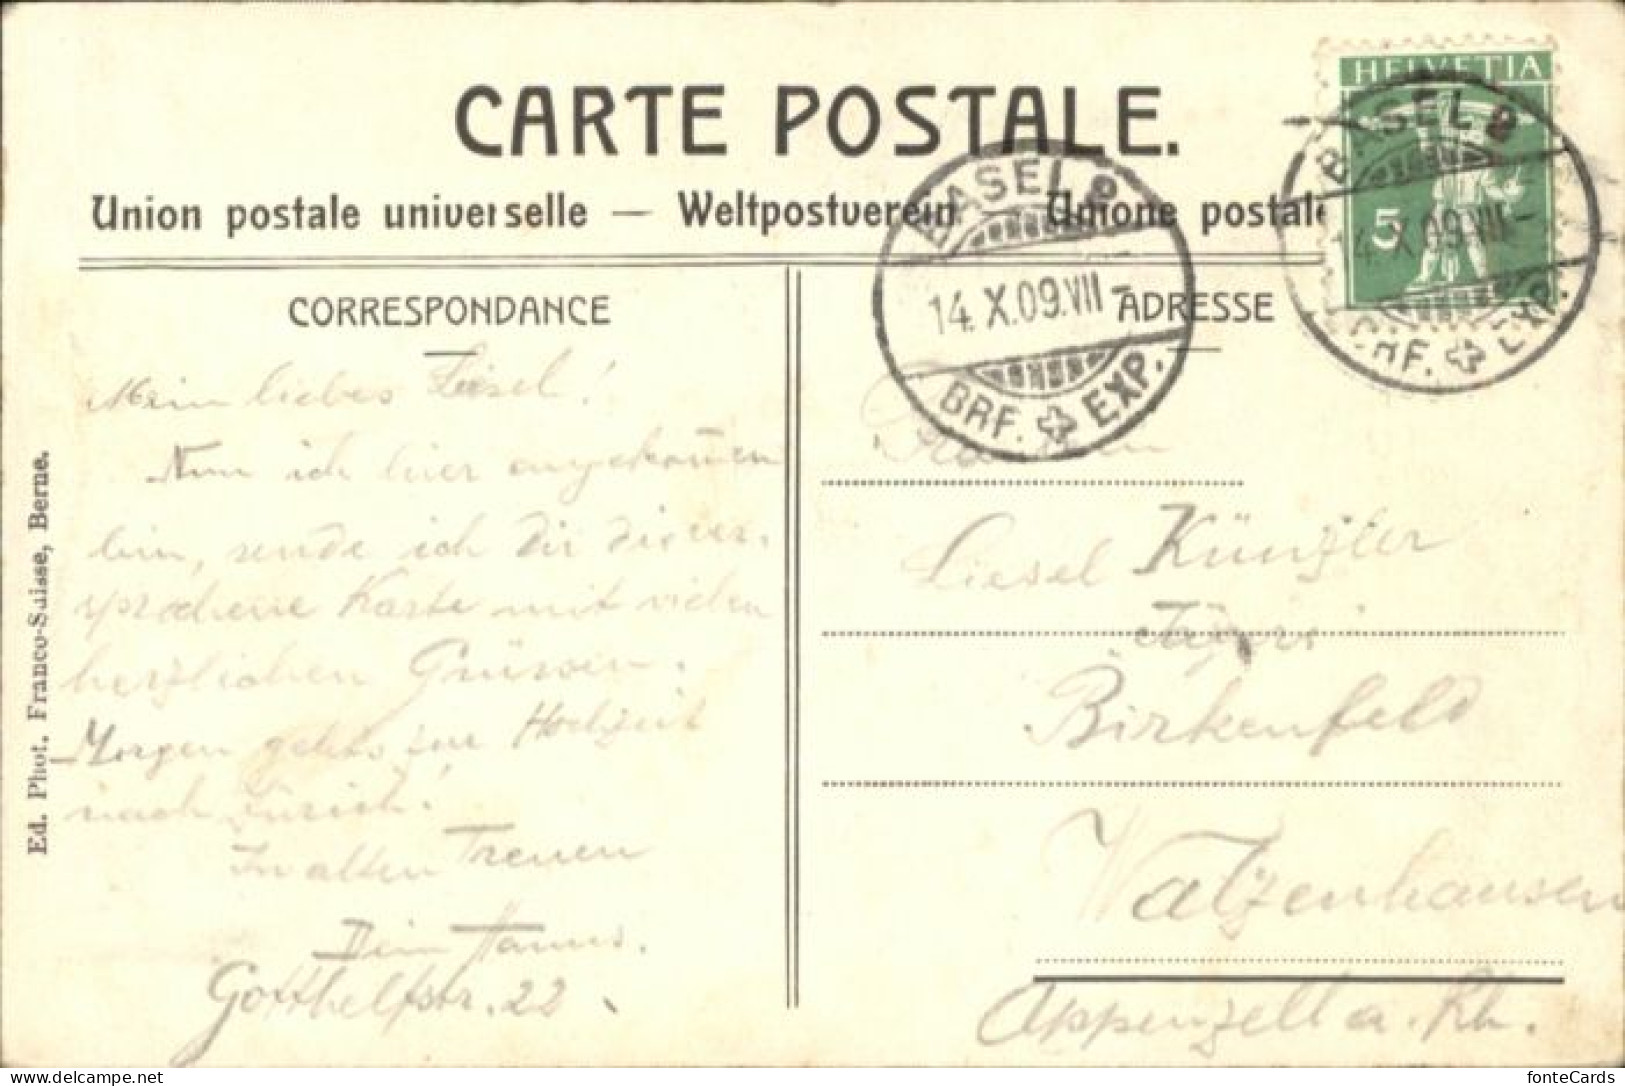 CARTE POSTALE.
Union postale universelle — Weltpostverein — Unione postale
CORRESPONDANCE
Mein liebes Liesel!
Nun ich hier angekommen
bin, sende ich Dir die ver-
sprochene Karte mit vielen
herzlichen Grüssen.
Morgen gehts zur Hochzeit
nach Zürich!
In alten Treuen
Dein Hanns.
Gotthelfstr. 22
Ed. Phot. Franco-Suisse, Berne.
ADRESSE
Fräulein
Liesel Künzler
Birkenfeld
Walzenhausen
Appenzell a. Rh.
HELVETIA
5
BASEL 2
14.X.09.VII-
BRF. EXP.
BASEL 2
14.X.09.VII-
BRF. EXP.
fonteCards